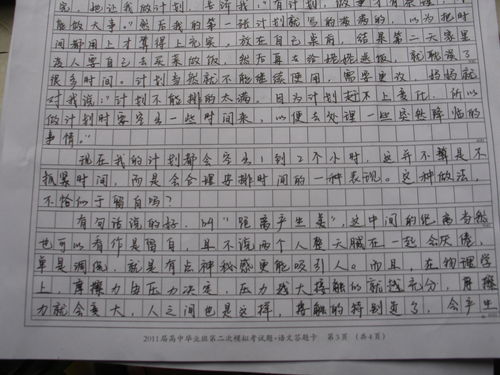 完，她让我做计划，告诉我，“有计划，做事才有条理，才
能做大事。”然后我的第一张计划就写的满满的，以为把时
间都用上才算得上充实，放在自己桌前，结果第二天家里
老人要自己去买菜做饭，然后再去给姥姥送饭，就耽误了
很多时间。计划当然就不能继续使用，需要更改，妈妈就
对我说：“计划不能排的太满，因为计划赶不上变化，所以
做计划时要空出一些时间来，以便去处理一些突然降临的
事情。”
现在我的计划都会空出1到2个小时，这并不算是不
抓紧时间，而是会合理安排时间的一种表现。这种做法，
不恰似于留白吗？
有句话说的好，叫“距离产生美”，这中间的距离当然
也可以看作是留白，且不说两个人整天腻在一起会厌倦，
单是调侃，就是有点神秘感更能吸引人。而且，在物理学
上，摩擦力由压力决定，压力越大接触的就越充分，摩擦
力就会变大，人之间也是这样，接触的特别近了，会产生
2011届高中毕业班第二次模拟考试题·语文答题卡 第3页 （共4页）